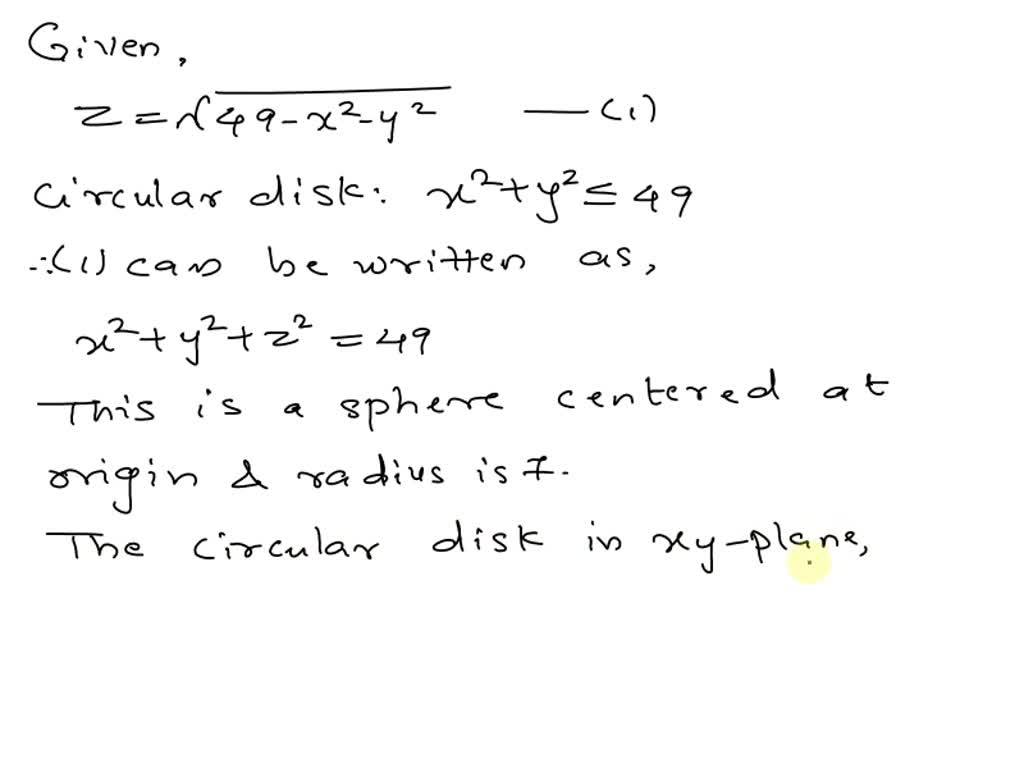 Given,
z = √49-x²-y² —(1)
Circular disk: x²+y² ≤ 49
∴(1) can be written as,
x²+y²+z² = 49
This is a sphere centered at
origin & radius is 7.
The circular disk in xy-plane,